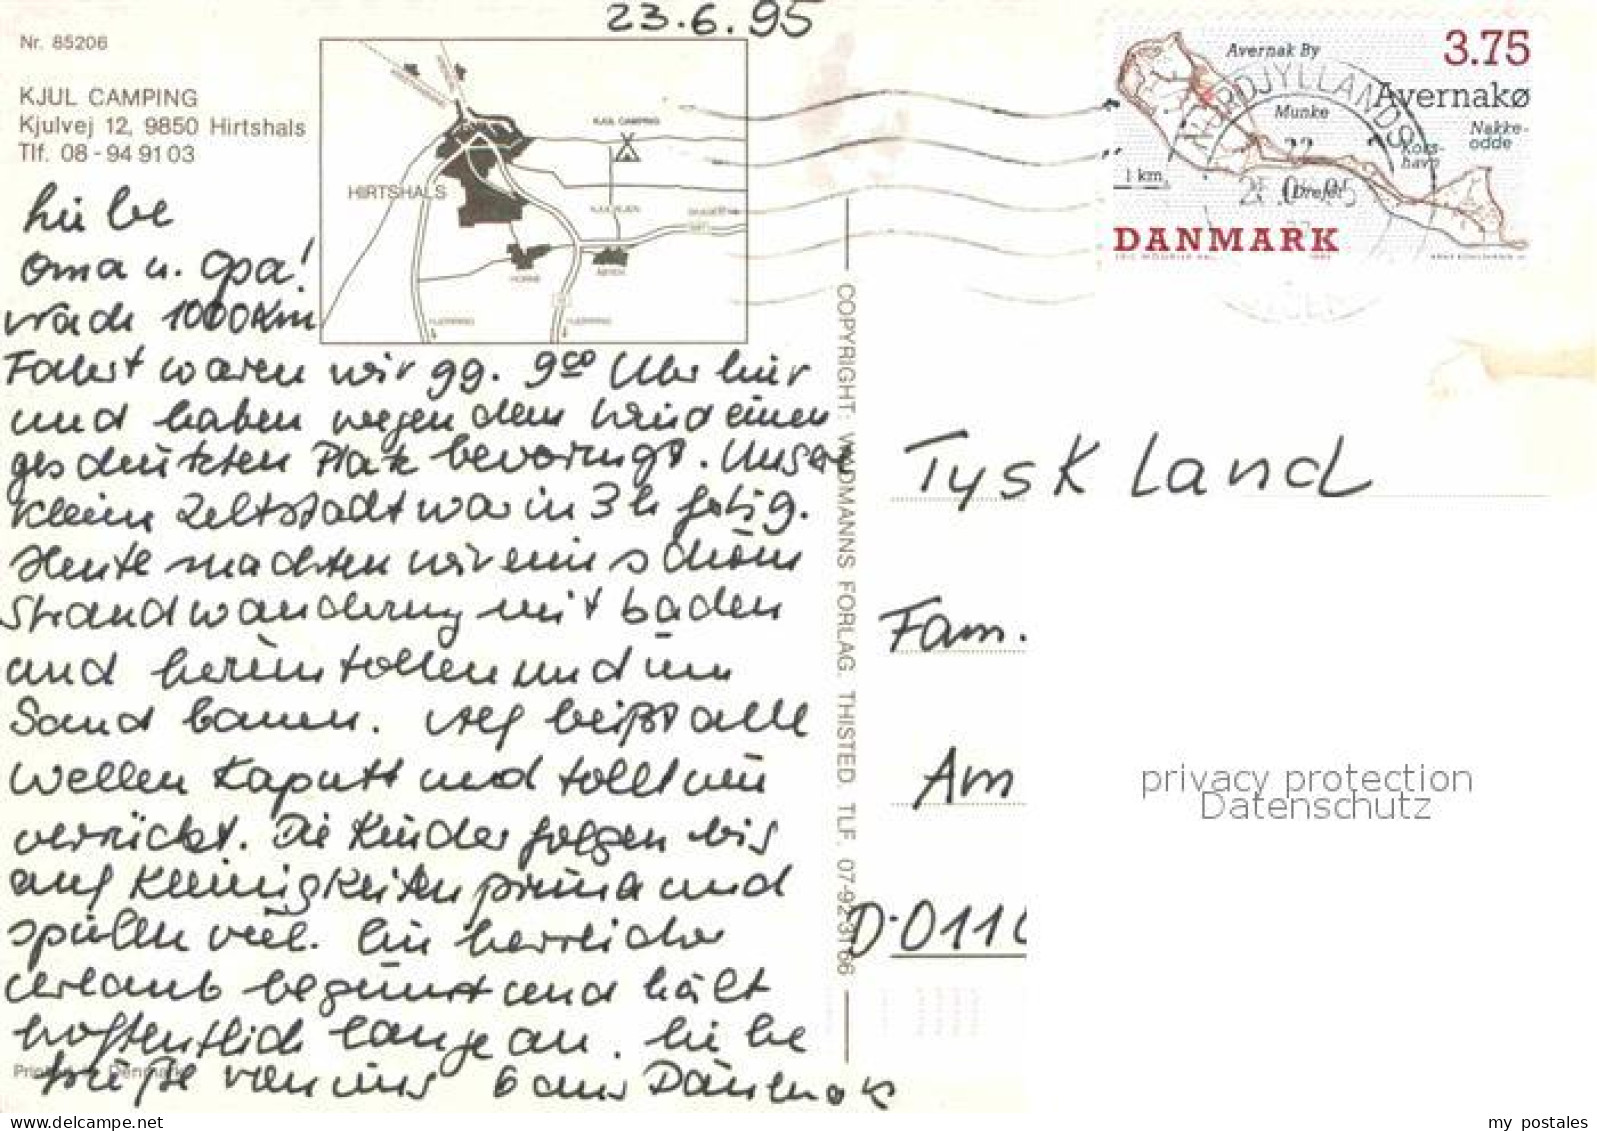 23.6.95
Nr. 85206
KJUL CAMPING
Kjulvej 12, 9850 Hirtshals
Tlf. 08 - 94 91 03
HIRTSHALS
KJUL CAMPING
HORNE
HJØRRING
HJØRRING
Avernak By
3.75
Avernakø
Munke
Nakke-
odde
Kors-
havn
1 km
Drejet
DANMARK
NORDJYLLANDS
Liebe
Oma u. Opa!
Nach 1000 Km
Fahrt waren wir gg. 9 00 Uhr hier
und haben wegen dem Wind einen
geschützten Platz bevorzugt. Unsere
kleine Zeltstadt war in 3 h fertig.
Heute machten wir eine schöne
Strandwanderung mit baden
und herumtollen und im
Sand bauen. beißt alle
Wellen kaputt und tollt wie
verrückt. Die Kinder folgen bis
auf Kleinigkeiten prima und
spielen viel. Ein herrlicher
Urlaub beginnt und hält
hoffentlich lange an. Liebe
Grüße von uns 6 aus Dänemark
COPYRIGHT: WIDMANNS FORLAG. THISTED. TLF. 07-92 31 66
Tyskland
Fam.
Am
D-0110
privacy protection
Datenschutz
delcampe.net
my_postales